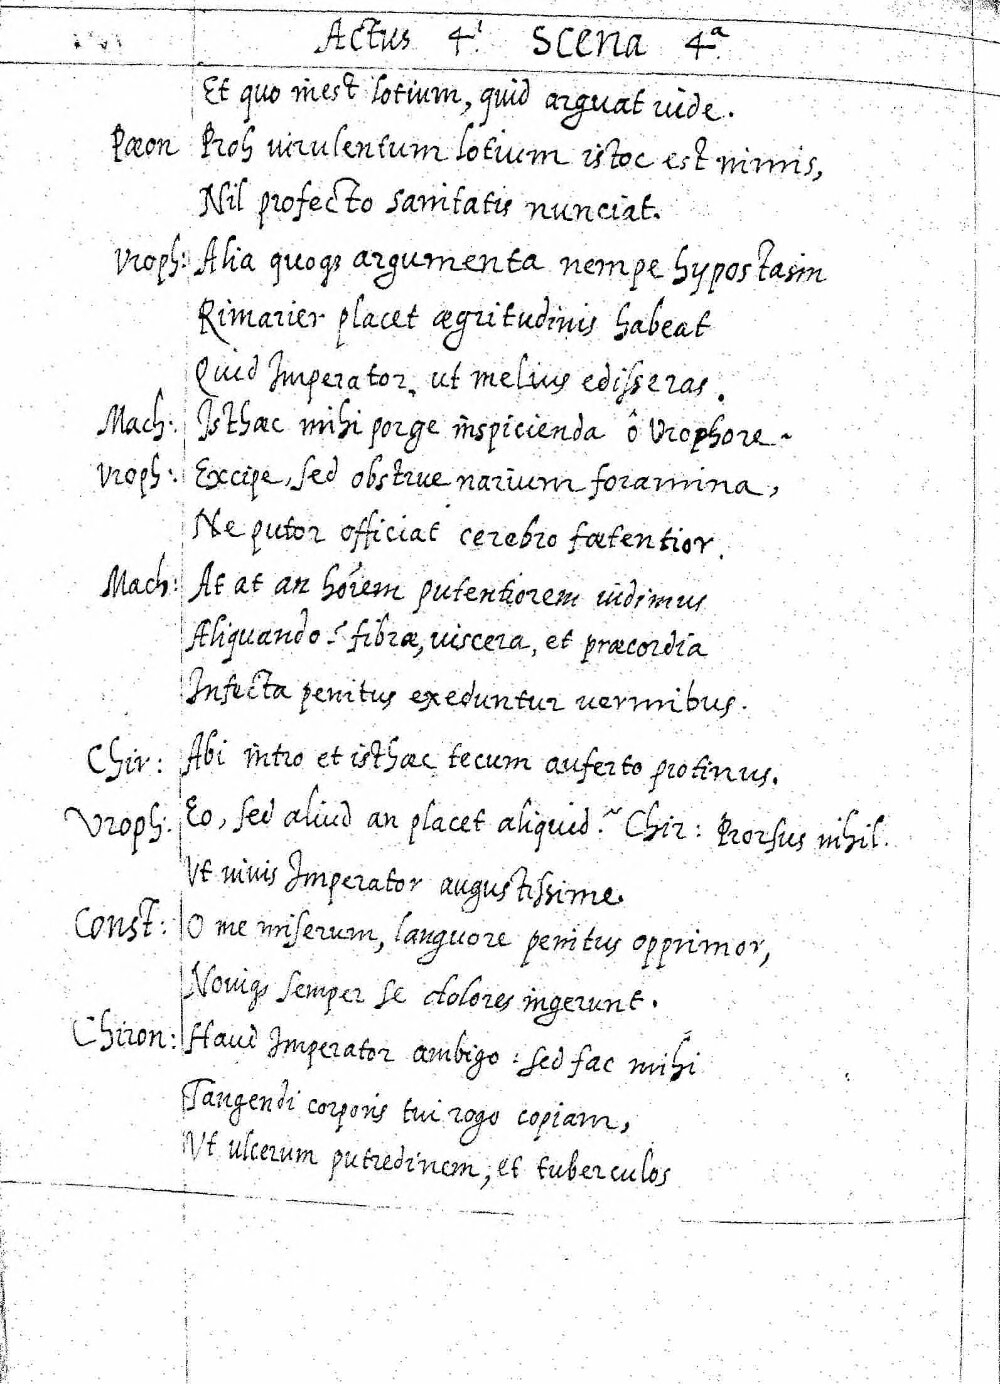 Actus 4.i Scena 4.a
Et quo inest lotium, quid arguat vide.
Pæon Proh virulentum lotium istoc est nimis,
Nil profecto sanitatis nunciat.
Vroph: Alia quoqȝ argumenta nempe hypostasin
Rimarier placet ægritudinis habeat
Quid Imperator, ut melius edisseras.
Mach: Isthæc mihi porge inspicienda ô Vrophore ~
Vroph: Excipe, sed obstrue narium foramina,
Ne putor officiat cerebro fœtentior.
Mach: At at an hoĩem putentiorem vidimus
Aliquando? fibræ, viscera, et præcordia
Infecta penitus exeduntur vermibus.
Chir: Abi intro et isthæc tecum auferto protinus.
Vroph: Eo, sed aliud an placet aliquid? Chir: Prorsus nihil.
Vt vivis Imperator augustissime.
Const: O me miserum, languore penitus opprimor,
Noviqȝ semper se dolores ingerunt.
Chiron: Haud Imperator ambigo: sed fac mihi
Tangendi corporis tui rogo copiam,
Vt ulcerum putredinem, et tuberculos